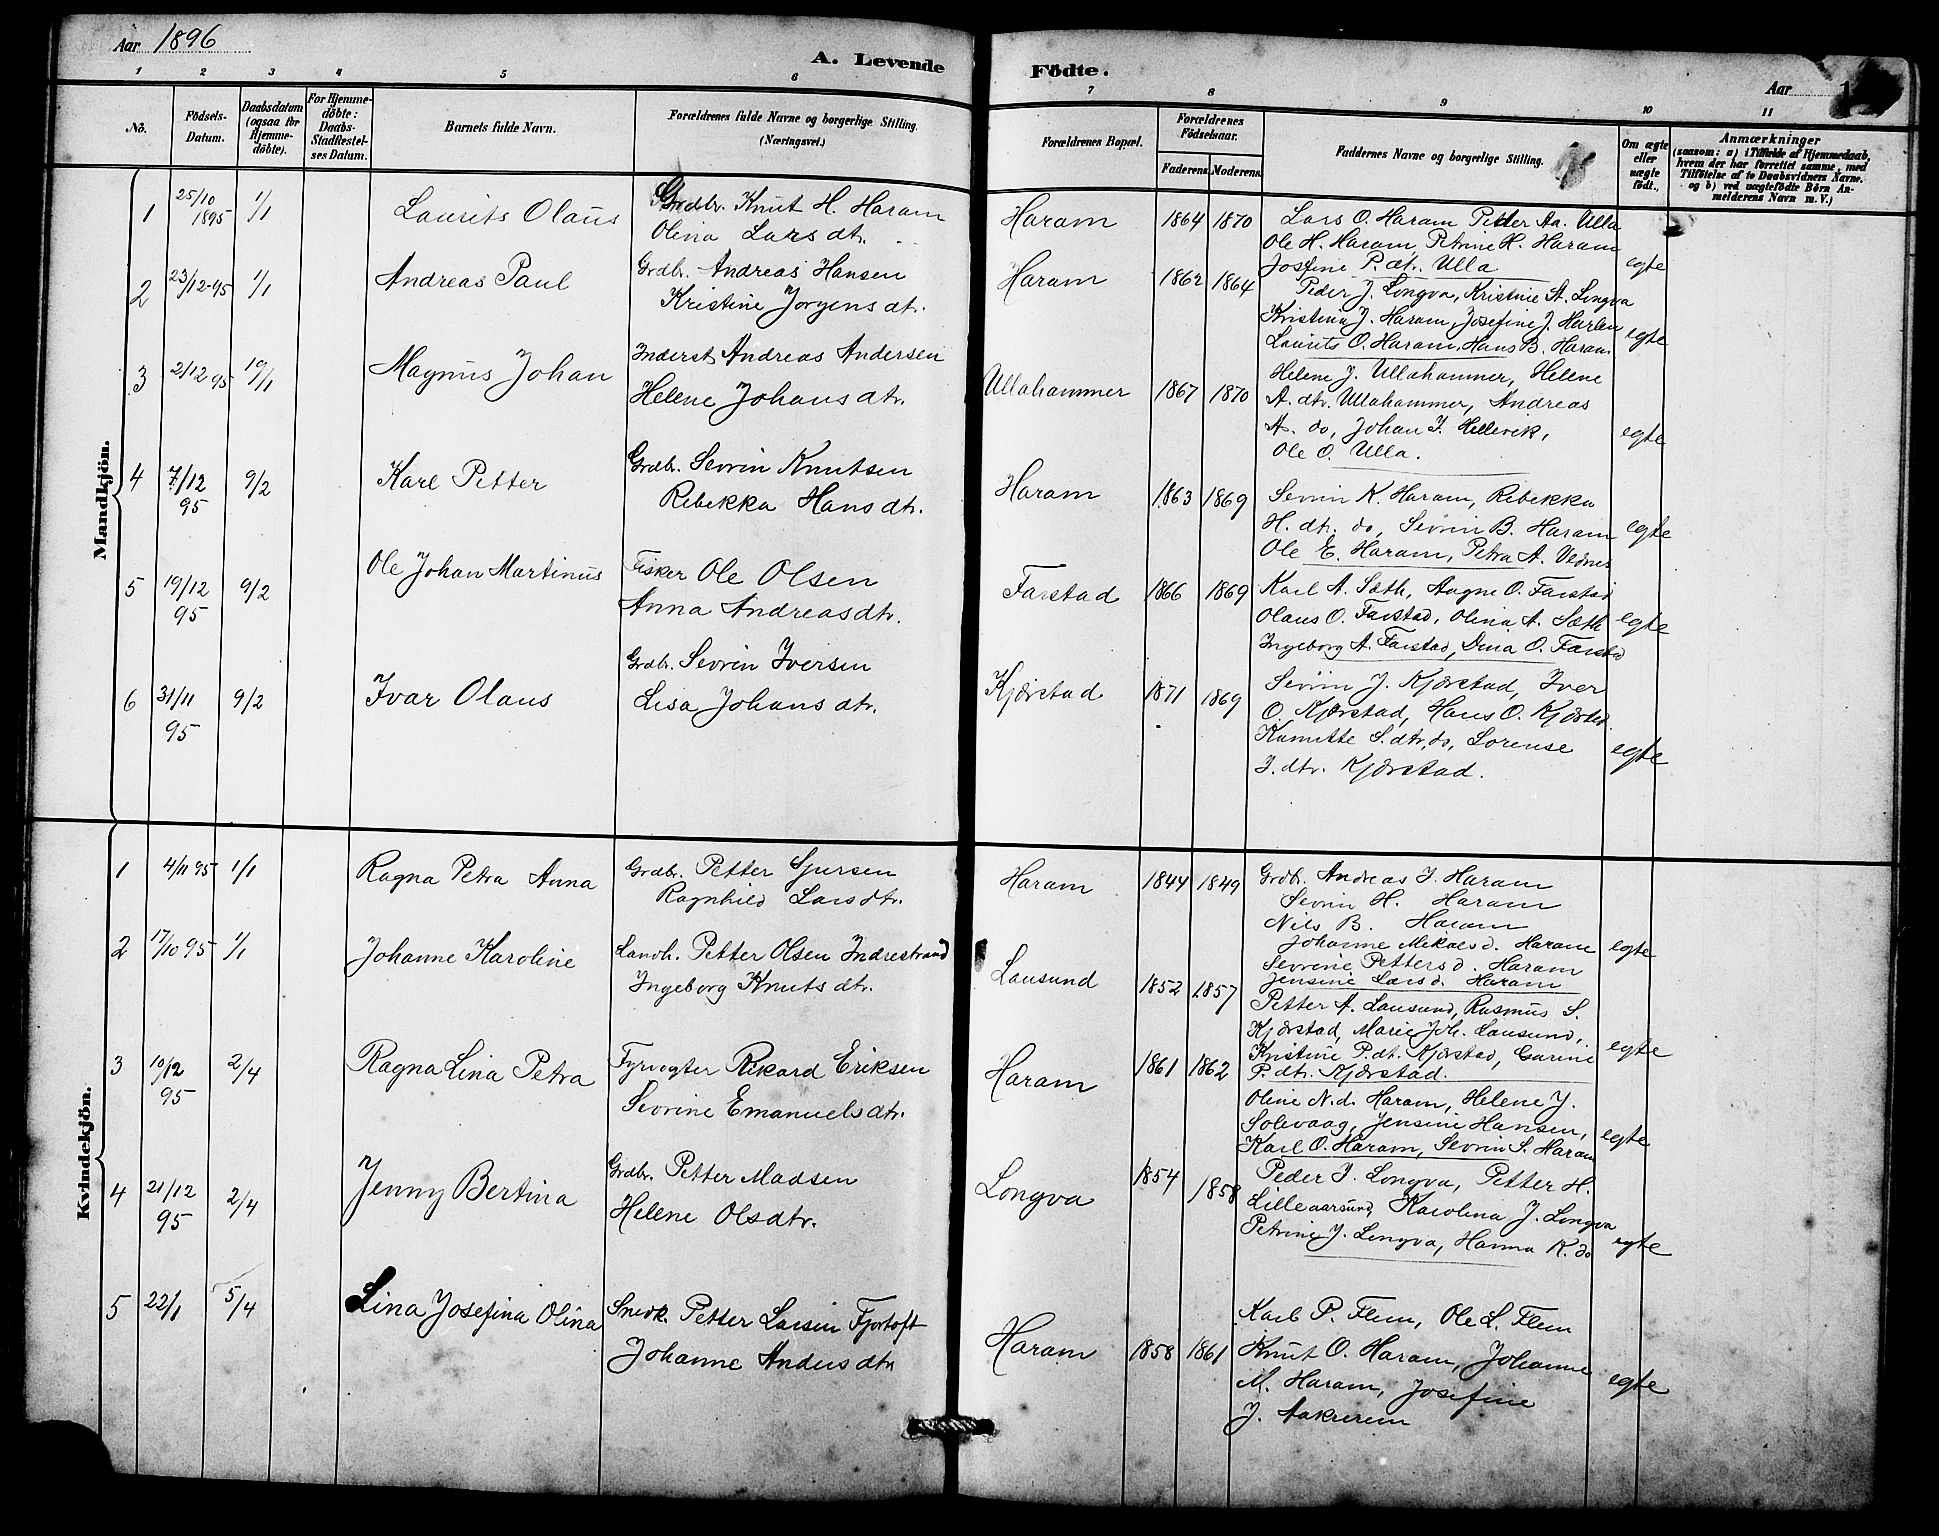 Aar 1896
A. Levende Födte.
Aar 1
1 2 3 4 5 6 7 8 9 10 11
No.
Födsels-Datum.
Daabsdatum (ogsaa for Hjemme-döbte).
For Hjemme-döbte: Daabs-Stadfæstel-ses Datum.
Barnets fulde Navn.
Forældrenes fulde Navne og borgerlige Stilling. (Næringsvei.)
Forældrenes Bopæl.
Forældrenes Födselsaar.
Faderens Moderens
Faddernes Navne og borgerlige Stilling.
Om ægte eller uægte födt.
Anmærkninger
(saasom: a) i Tilfælde af Hjemmedaab, hvem der har forrettet samme, med Tilföielse af to Daabsvidners Navne. og b) ved uægtefödte Börn An-melderens Navn m. V.)
Mandkjön.
1 25/10 1895 1/1 Laurits Olaus
Grdbr. Knut H. Haram
Olina Larsdtr.
Haram 1864 1870
Lars O. Haram Petter Aa. Ulla
Ole H. Haram Petrine H. Haram
Josfine P.dtr. Ulla
egte
2 23/12-95 1/1 Andreas Paul
Grdbr. Andreas Hansen
Kristine Jorgensdtr.
Haram 1862 1864
Peder J. Longva, Kristine A. Longva
Kristina J. Haram, Josefine J. Haram
Laurits O. Haram, Hans B. Haram
egte
3 2/12 95 19/1 Magnus Johan
Inderst Andreas Andersen
Helene Johansdtr.
Ullahammer 1867 1870
Helene J. Ullahammer, Helene
A.dtr. Ullahammer, Andreas
A. do, Johan J. Hellevik,
Ole O. Ulla.
egte
4 7/12 95 9/2 Karl Petter
Grdbr. Sevrin Knutsen
Rebekka Hansdtr.
Haram 1863 1869
Sevrin K. Haram, Rebekka
H.dtr. do, Sevrin B. Haram
Ole E. Haram, Petra A. Vednes
egte
5 19/12 95 9/2 Ole Johan Martinus
Fisker Ole Olsen
Anna Andreasdtr.
Farstad 1866 1869
Karl A. Sæth, Aagne O. Farstad
Olaus O. Farstad, Olina A. Sæth
Ingeborg A. Farstad, Dina O. Farstad
egte
6 31/11 95 9/2 Ivar Olaus
Grdbr. Sevrin Iversen
Lisa Johansdtr.
Kjørstad 1871 1869
Sevrin J. Kjørstad, Iver
O. Kjørstad, Hans O. Kjørstad.
Kanutte S.dtr. do, Lorense
I.dtr. Kjørstad.
egte
Kvindekjön.
1 4/11 95 1/1 Ragna Petra Anna
Grdbr. Petter Sjursen
Ragnhild Larsdtr.
Haram 1844 1849
Grdbr. Andreas J. Haram
Sevrin H. Haram
Nils B. Haram
Johanne Mekaelsd. Haram
Sevrine Pettersd. Haram
Jensine Larsd. Haram
egte
2 17/10 95 1/1 Johanne Karoline
Landh. Petter Olsen Indrestrand
Ingeborg Knutsdtr.
Lausund 1852 1857
Petter A. Lausund, Rasmus S.
Kjørstad, Marie Joh. Lausund,
Kristine P.dt. Kjørstad, Gurine
P.dtr. Kjørstad.
egte
3 10/12 95 2/4 Ragna Lina Petra
Fyrvogter Rikard Eriksen
Sevrine Emanuelsdtr.
Haram 1861 1862
Oline N.d. Haram, Helene J.
Solevaag, Jensine Hansen,
Karl O. Haram, Sevrin S. Haram
egte
4 21/12 95 2/4 Jenny Bertina
Grdbr. Petter Madsen
Helene Olsdtr.
Longva 1854 1858
Peder J. Longva, Petter H.
Lilleaarsund, Karolina J. Longva
Petrine J. Longva, Hanna K. do
egte
5 22/1 5/4 Lina Josefina Olina
Snedk. Petter Larsen Fjortoft
Johanne Andersdtr
Haram 1858 1861
Karl P. Flem, Ole L. Flem
Knut O. Haram, Johanne
M. Haram, Josefine
J. Aakrerem
egte